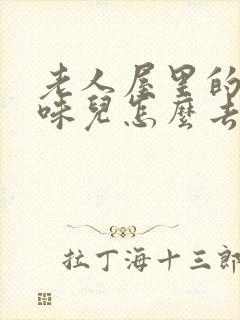 老人屋里的
味兒怎麽去
拉丁海十三郎